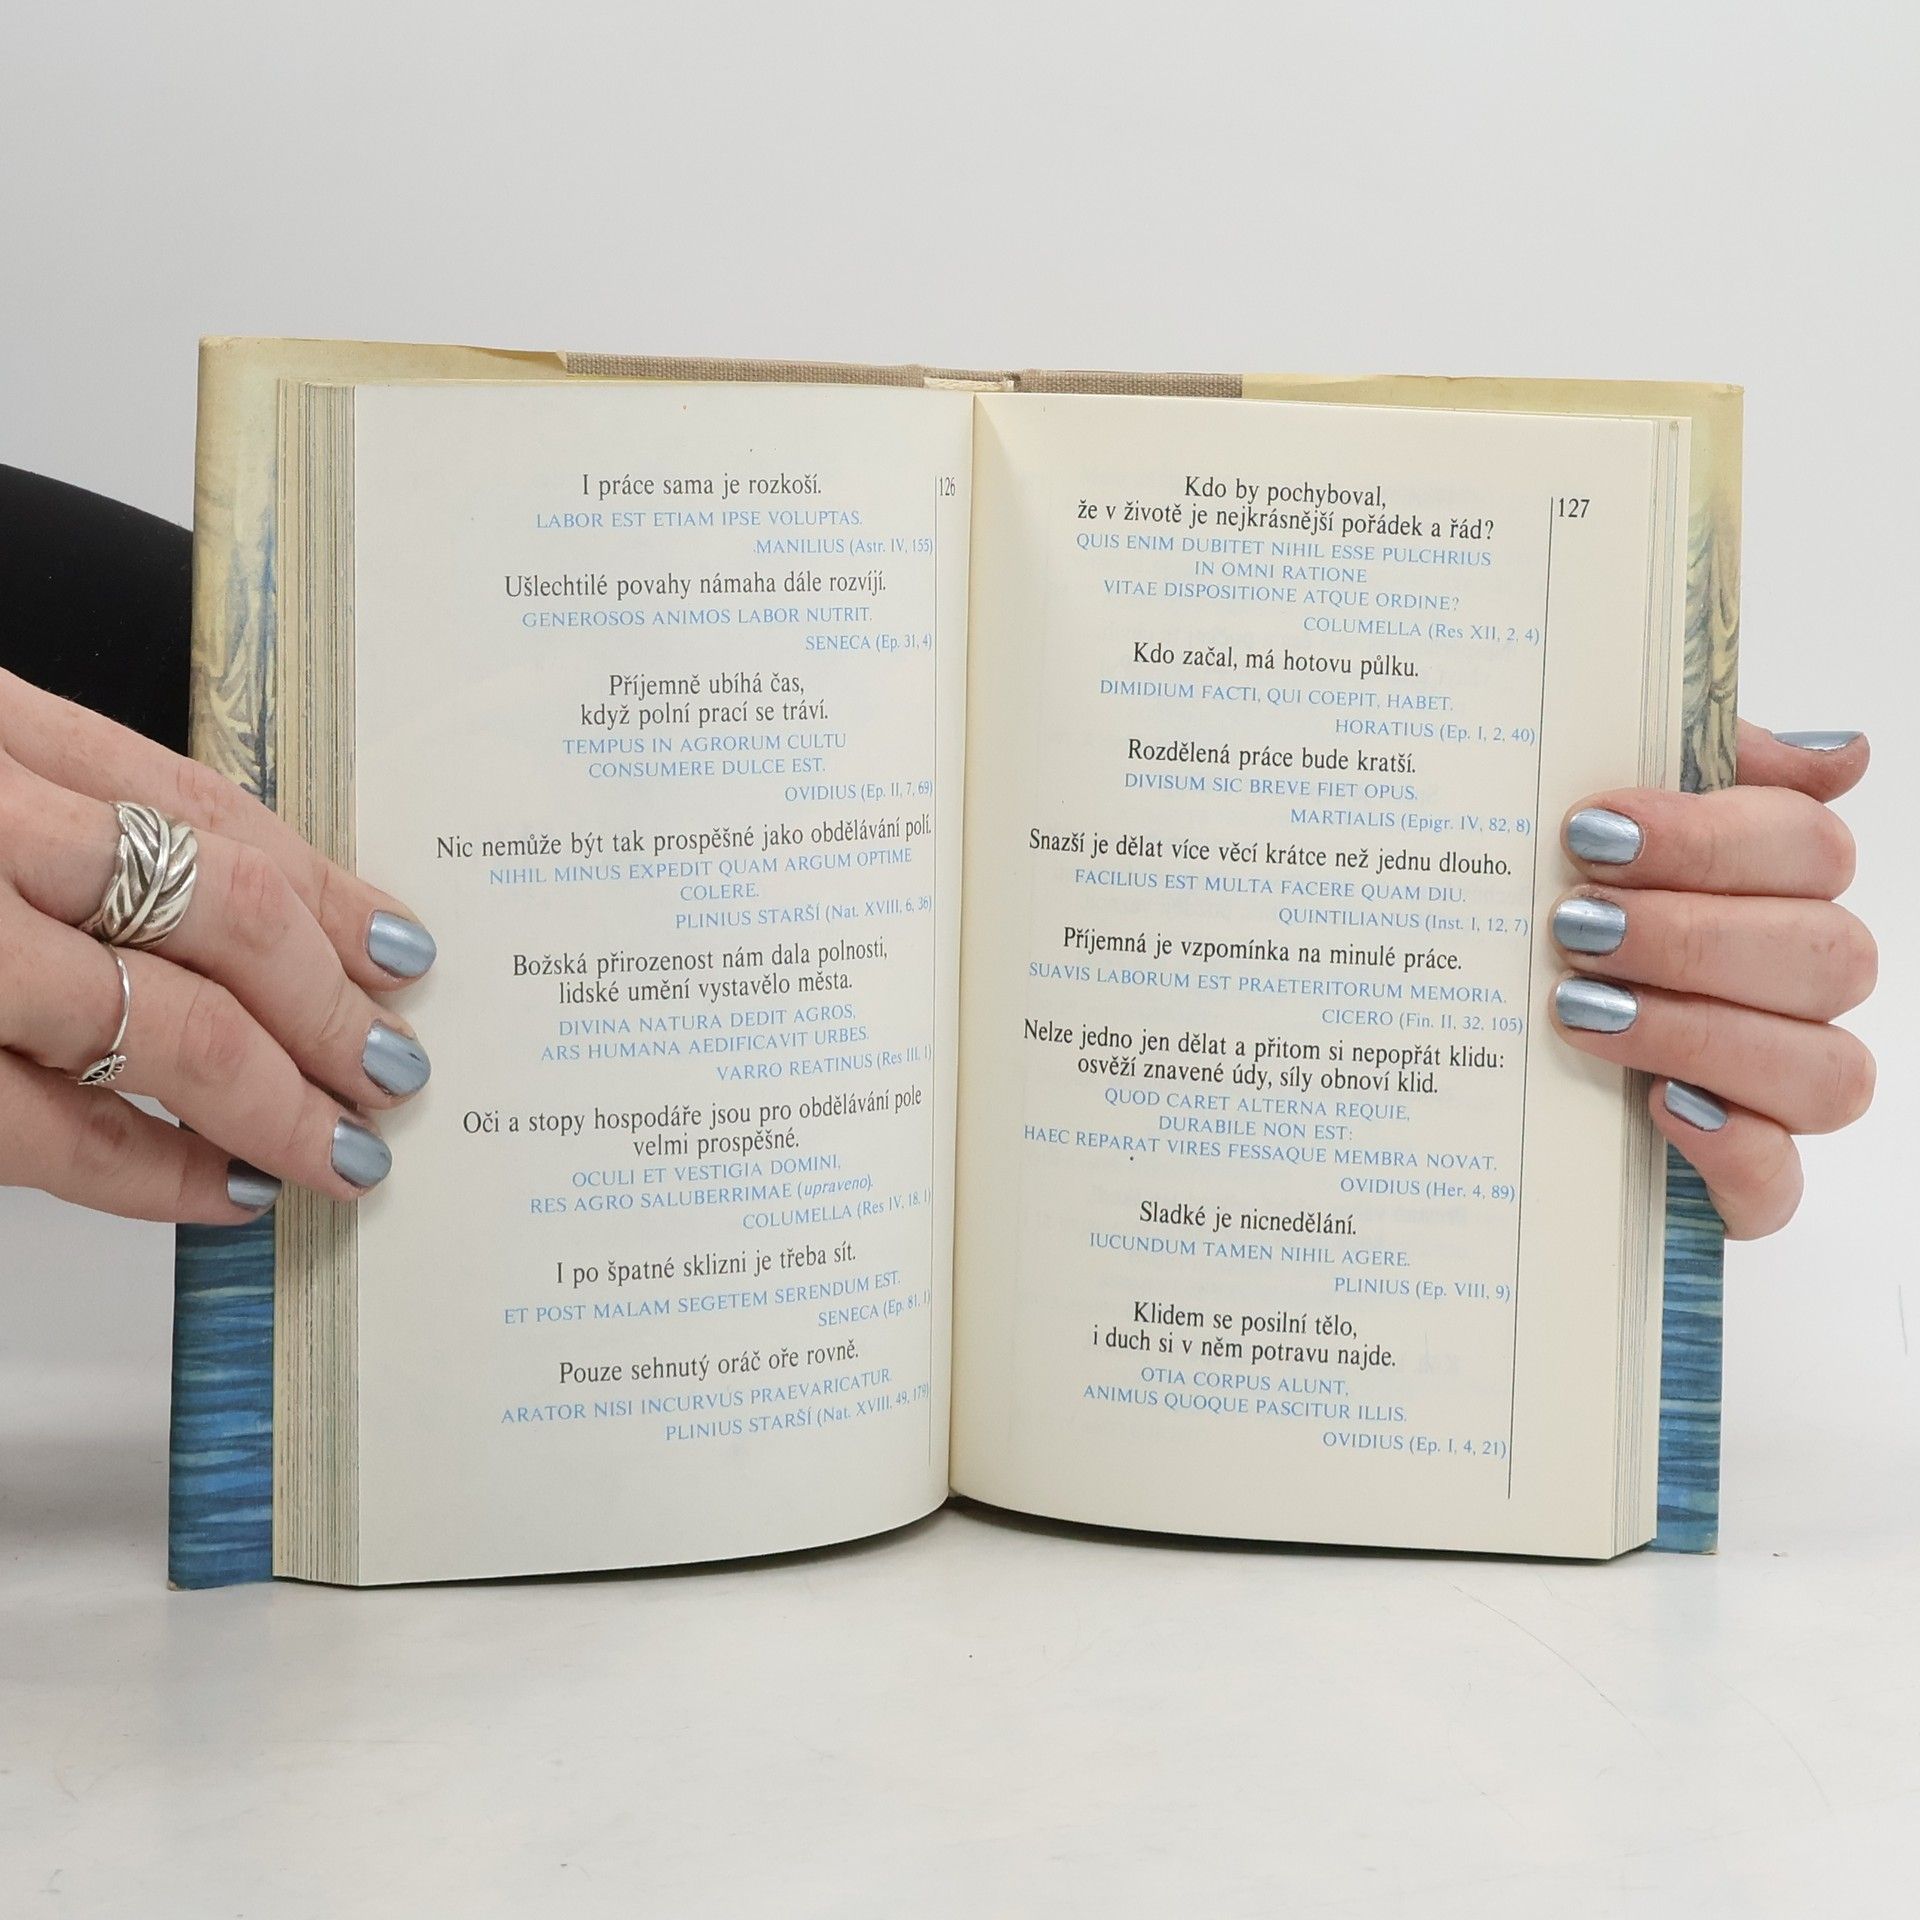 I práce sama je rozkoší.
LABOR EST ETIAM IPSE VOLUPTAS.
MANILIUS (Astr. IV, 155)
Ušlechtilé povahy námaha dále rozvíjí.
GENEROSOS ANIMOS LABOR NUTRIT.
SENECA (Ep. 31, 4)
Příjemně ubíhá čas,
když polní prací se tráví.
TEMPUS IN AGRORUM CULTU
CONSUMERE DULCE EST.
OVIDIUS (Ep. II, 7, 69)
Nic nemůže být tak prospěšné jako obdělávání polí.
NIHIL MINUS EXPEDIT QUAM ARGUM OPTIME
COLERE.
PLINIUS STARŠÍ (Nat. XVIII, 6, 36)
Božská přirozenost nám dala polnosti,
lidské umění vystavělo města.
DIVINA NATURA DEDIT AGROS,
ARS HUMANA AEDIFICAVIT URBES.
VARRO REATINUS (Res III, 1)
Oči a stopy hospodáře jsou pro obdělávání pole
velmi prospěšné.
OCULI ET VESTIGIA DOMINI,
RES AGRO SALUBERRIMAE (upraveno).
COLUMELLA (Res IV, 18, 1)
I po špatné sklizni je třeba sít.
ET POST MALAM SEGETEM SERENDUM EST.
SENECA (Ep. 81, 1)
Pouze sehnutý oráč oře rovně.
ARATOR NISI INCURVUS PRAEVARICATUR.
PLINIUS STARŠÍ (Nat. XVIII, 49, 179)
126
Kdo by pochyboval,
že v životě je nejkrásnější pořádek a řád?
QUIS ENIM DUBITET NIHIL ESSE PULCHRIUS
IN OMNI RATIONE
VITAE DISPOSITIONE ATQUE ORDINE?
COLUMELLA (Res XII, 2, 4)
Kdo začal, má hotovu půlku.
DIMIDIUM FACTI, QUI COEPIT, HABET.
HORATIUS (Ep. I, 2, 40)
Rozdělená práce bude kratší.
DIVISUM SIC BREVE FIET OPUS.
MARTIALIS (Epigr. IV, 82, 8)
Snazší je dělat více věcí krátce než jednu dlouho.
FACILIUS EST MULTA FACERE QUAM DIU.
QUINTILIANUS (Inst. I, 12, 7)
Příjemná je vzpomínka na minulé práce.
SUAVIS LABORUM EST PRAETERITORUM MEMORIA.
CICERO (Fin. II, 32, 105)
Nelze jedno jen dělat a přitom si nepopřát klidu:
osvěží znavené údy, síly obnoví klid.
QUOD CARET ALTERNA REQUIE,
DURABILE NON EST:
HAEC REPARAT VIRES FESSAQUE MEMBRA NOVAT.
OVIDIUS (Her. 4, 89)
Sladké je nicnedělání.
IUCUNDUM TAMEN NIHIL AGERE.
PLINIUS (Ep. VIII, 9)
Klidem se posilní tělo,
i duch si v něm potravu najde.
OTIA CORPUS ALUNT,
ANIMUS QUOQUE PASCITUR ILLIS.
OVIDIUS (Ep. I, 4, 21)
127